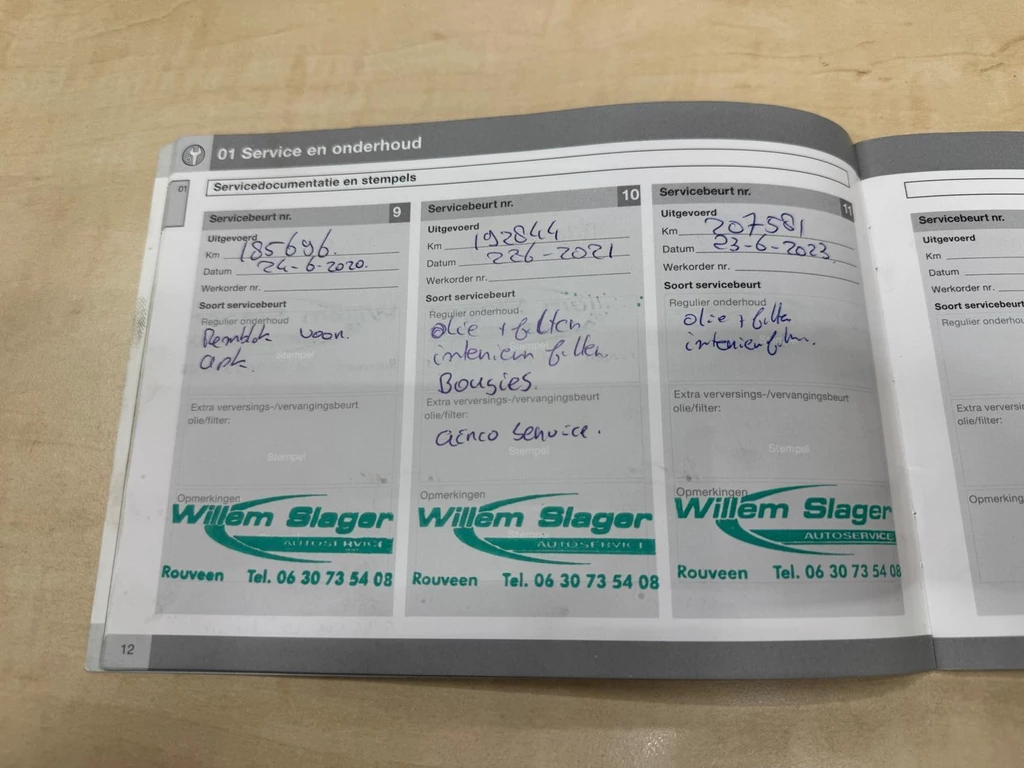 01 Service en onderhoud
01
Servicedocumentatie en stempels
Servicebeurt nr. 9
Uitgevoerd
Km 185696.
Datum 24-6-2020.
Werkorder nr.
Soort servicebeurt
Regulier onderhoud
Remblok voor.
apk.
Stempel
Extra verversings-/vervangingsbeurt
olie/filter:
Stempel
Opmerkingen
Willem Slager
AUTOSERVICE
Rouveen Tel. 06 30 73 54 08
Servicebeurt nr. 10
Uitgevoerd
Km 192844
Datum 226-2021
Werkorder nr.
Soort servicebeurt
Regulier onderhoud
olie + filter
interieur filter.
Bougies.
Extra verversings-/vervangingsbeurt
olie/filter:
airco service.
Stempel
Opmerkingen
Willem Slager
AUTOSERVICE
Rouveen Tel. 06 30 73 54 08
Servicebeurt nr. 11
Uitgevoerd
Km 207581
Datum 23-6-2023
Werkorder nr.
Soort servicebeurt
Regulier onderhoud
olie + filter
interieurfilter.
Extra verversings-/vervangingsbeurt
olie/filter:
Stempel
Opmerkingen
Willem Slager
AUTOSERVICE
Rouveen Tel. 06 30 73 54 08
12
Servicebeurt nr.
Uitgevoerd
Km
Datum
Werkorder nr.
Soort servicebeurt
Regulier onderhou
Extra verversings
olie/filter:
Opmerking